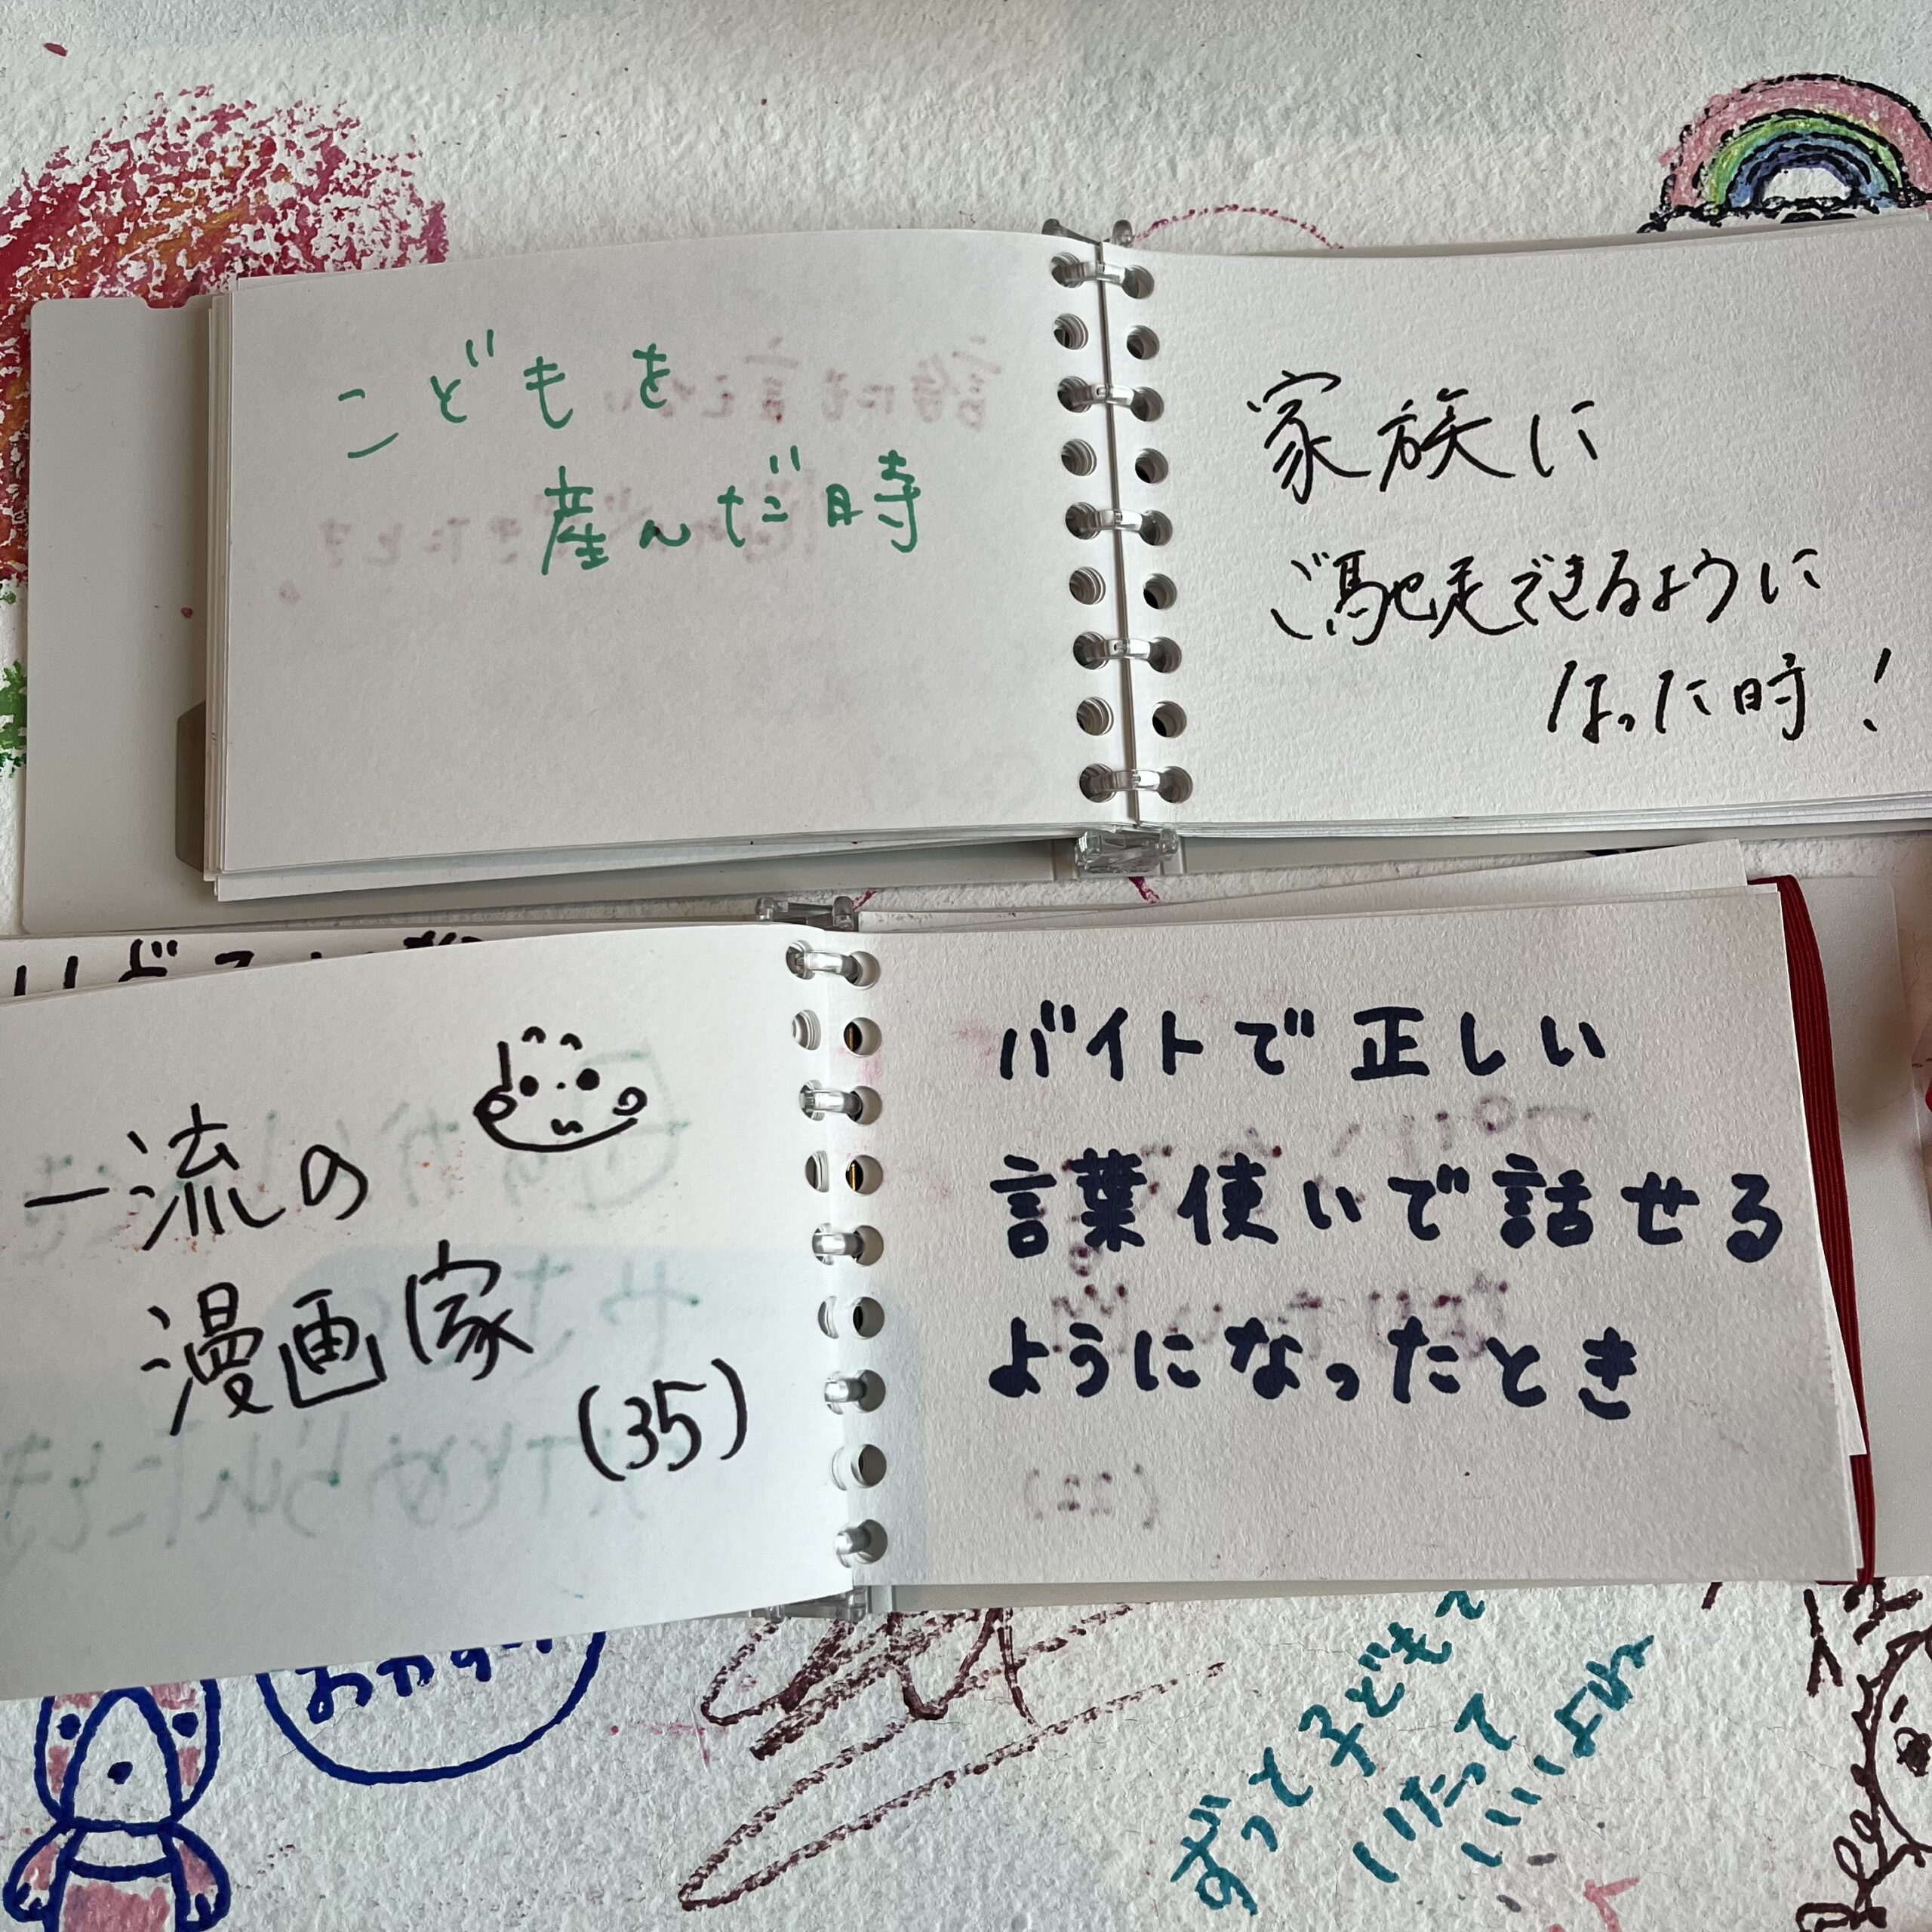 こどもを
産んだ時
家族に
ご馳走できるように
なった時！
一流の
漫画家
(35)
バイトで正しい
言葉使いで話せる
ようになったとき
ずっと子どもで
いたって
いいよね